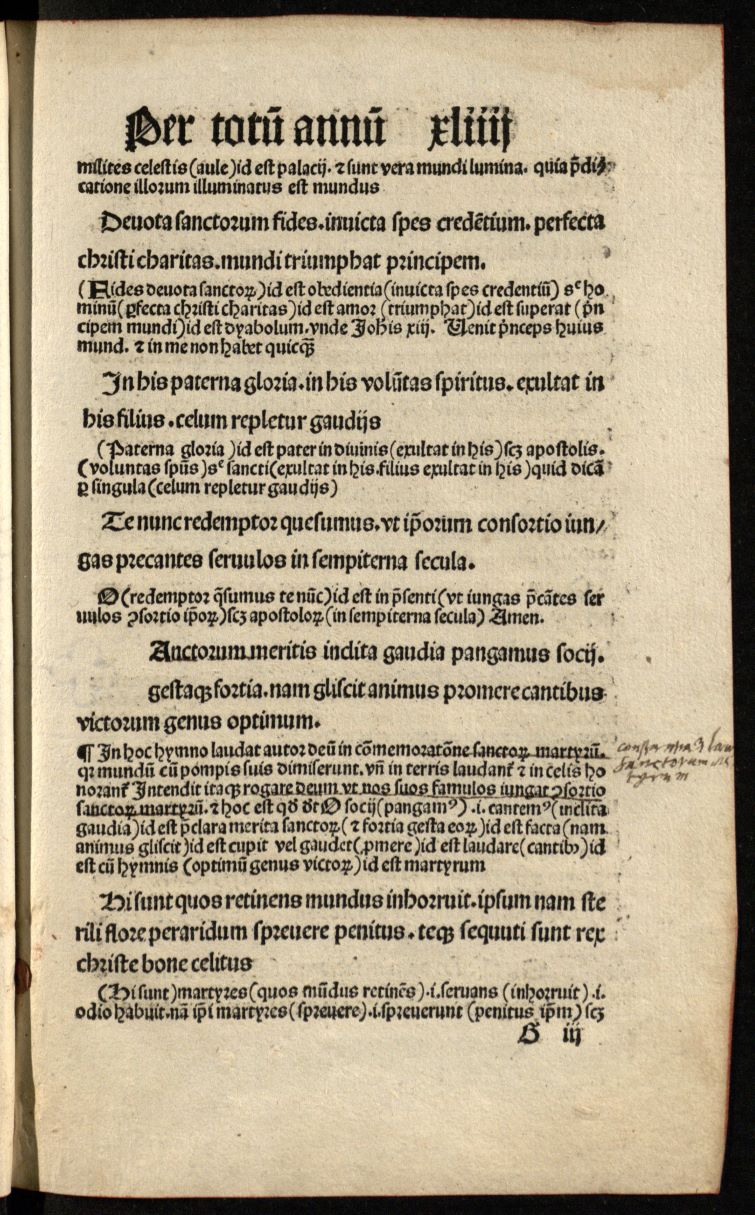 Per totū annū xliiij
milites celestis (aule) id est palacij. ⁊ sunt vera mundi lumina. quia p̄di⸗
catione illorum illuminatus est mundus
Deuota sanctorum fides. inuicta spes credētium. perfecta
christi charitas. mundi triumphat principem.
(Fides deuota sanctoꝝ) id est obedientia (inuicta spes credentiū) sᶜ ho
minū (ꝑfecta christi charitas) id est amor (triumphat) id est superat (p̄n
cipem mundi) id est dyabolum. vnde Joh̄is xiij. Uenit p̄nceps huius
mund. ⁊ in me non habet quicq̄ꝫ
In his paterna gloria. in his volūtas spiritus. exultat in
his filius. celum repletur gaudijs
(Paterna gloria) id est pater in diuinis (exultat in his) scꝫ apostolis.
(voluntas spūs) sᶜ sancti (exultat in his. filius exultat in his) quid dicā
ꝑ singula (celum repletur gaudijs)
Te nunc redemptor quesumus. vt ip̄orum consortio iun/
gas precantes seruulos in sempiterna secula.
O (redemptor q̄sumus te nūc) id est in p̄senti (vt iungas p̄cātes ser
uulos ꝯsortio ip̄oꝝ) scꝫ apostoloꝝ (in sempiterna secula) Amen.
Anctorum meritis inclita gaudia pangamus socij.
gestaqꝫ fortia. nam gliscit animus promere cantibus
victorum genus optimum.
¶ In hoc hymno laudat autor deū in cōmemoratōne sanctoꝝ martyrū.
qr mundū cū pompis suis dimiserunt. vn̄ in terris laudant᷑ ⁊ in celis ho
norant᷑ Intendit itaqꝫ rogare deum vt nos suos famulos iungat ꝯsortio
sanctoꝝ martyrū. ⁊ hoc est qd̄ dt̄ O socij (pangamꝰ) .i. cantemꝰ (inclita
gaudia) id est p̄clara merita sanctoꝝ (⁊ fortia gesta eoꝝ) id est facta (nam
animus gliscit) id est cupit vel gaudet (ꝓmere) id est laudare (cantibꝫ) id
est cū hymnis (optimū genus victoꝝ) id est martyrum
Hi sunt quos retinens mundus inhorruit. ipsum nam ste
rili flore peraridum spreuere penitus. teqꝫ sequuti sunt rex
christe bone celitus
(Hi sunt) martyres (quos mūdus retinēs) .i. seruans (inhorruit) .i.
odio habuit. nā ip̄i martyres (spreuere) .i. spreuerunt (penitus ip̄m) scꝫ
G iij
sanctorum